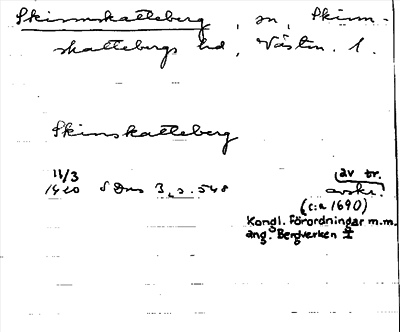 Skinnskatteberg, sn, Skinn-
skattebergs hd, Västm. l.
Skinskatteberg
11/3
1420 SDns 3, s. 548
av tr.
avskr.
(c:a 1690)
Kongl. Förordningar m.m.
ang. Bergverken I